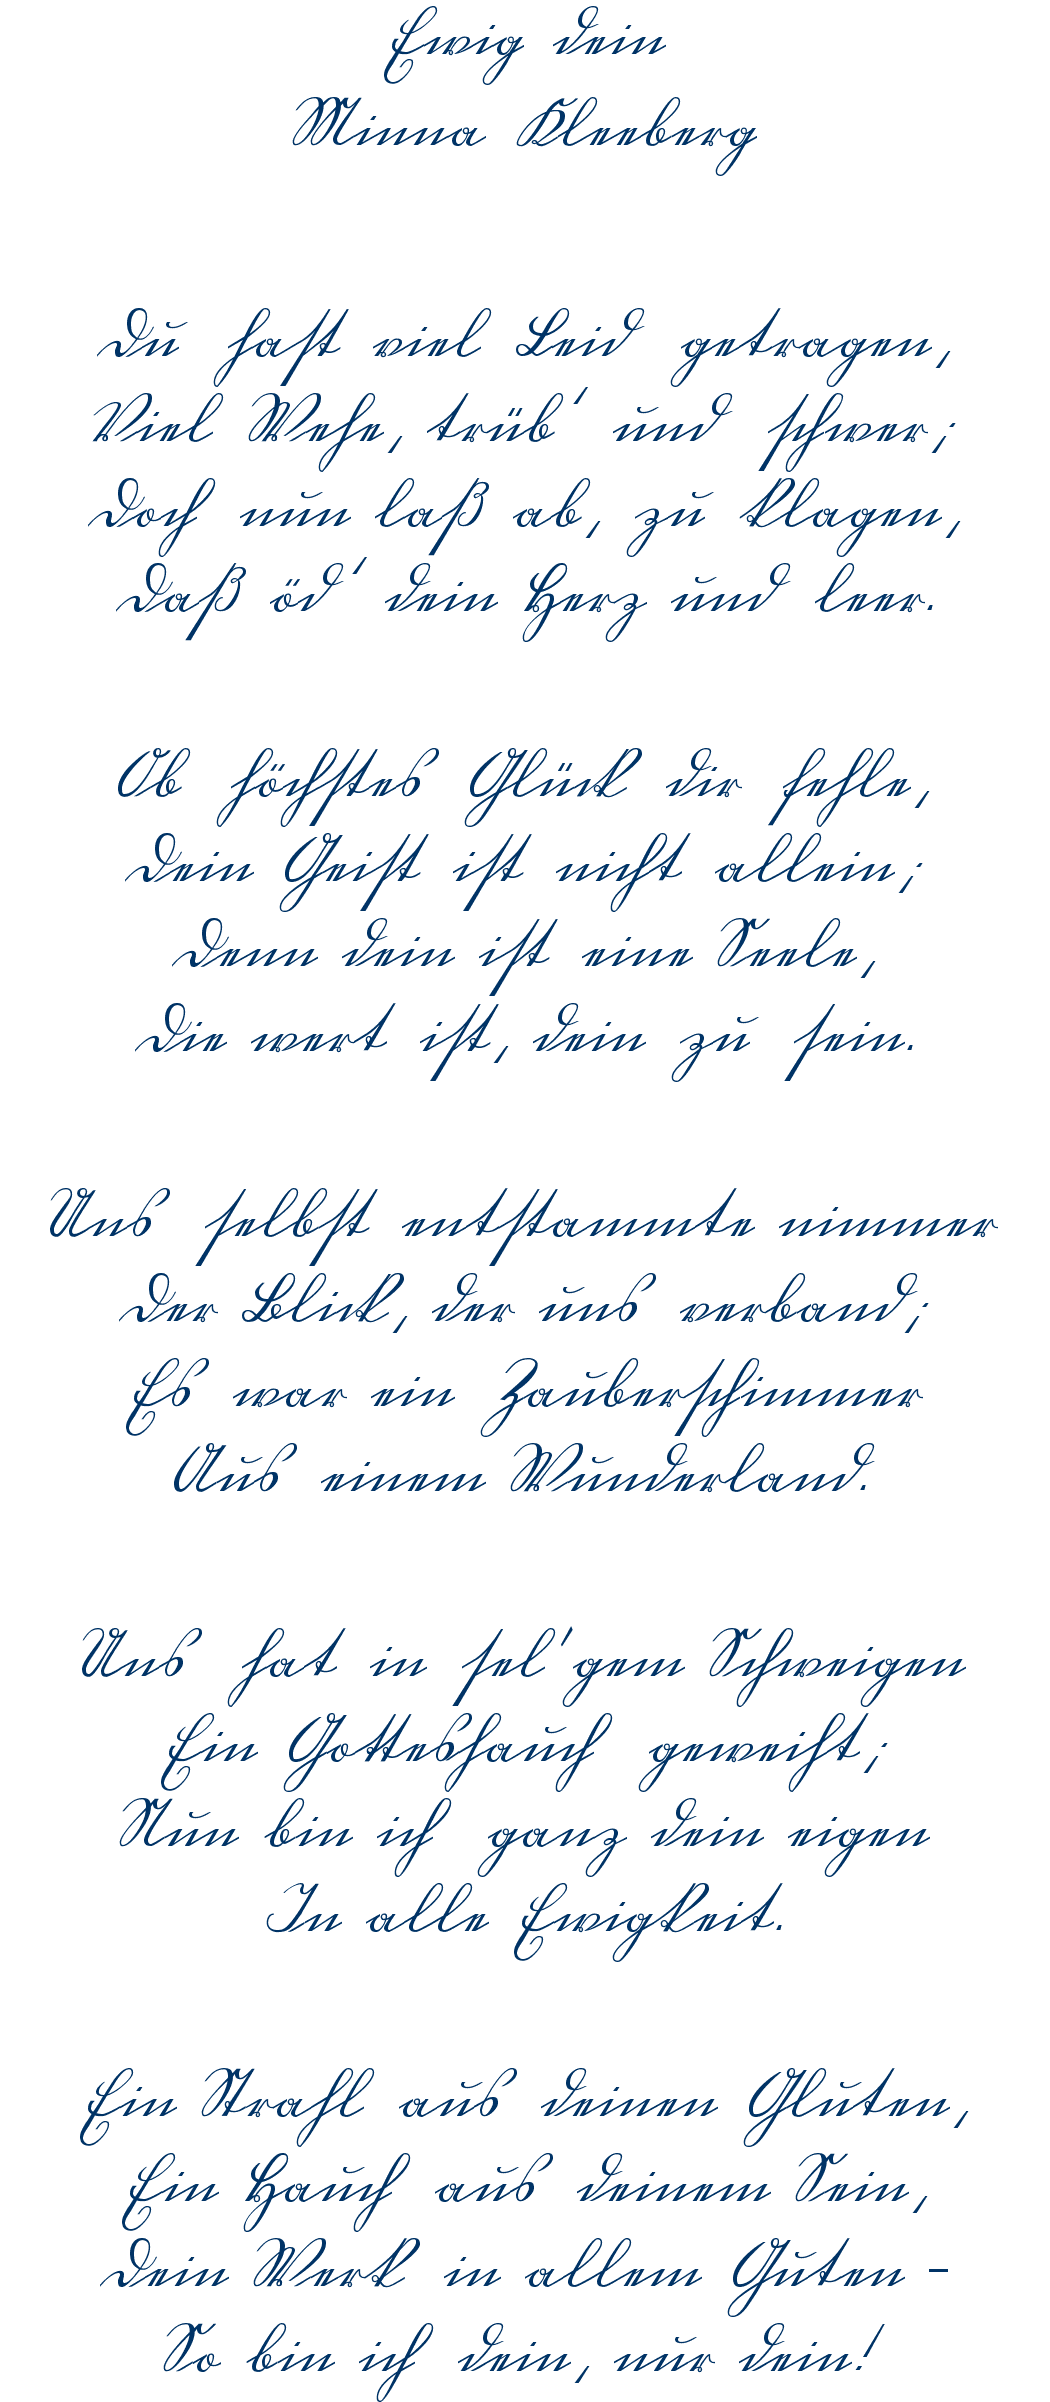 Ewig dein
Minna Kleeberg
Du hast viel Leid getragen,
Viel Wehe, trüb' und schwer;
Doch nun laß ab, zu klagen,
Daß öd' dein Herz und leer.
Ob höchstes Glück dir fehle,
Dein Geist ist nicht allein;
Denn dein ist eine Seele,
Die wert ist, dein zu sein.
Uns selbst entstammte nimmer
Der Blick, der uns verband;
Es war ein Zauberschimmer
Aus einem Wunderland.
Uns hat in sel'gem Schweigen
Ein Gotteshauch geweiht;
Nun bin ich ganz dein eigen
In alle Ewigkeit.
Ein Strahl aus deinen Gluten,
Ein Hauch aus deinem Sein,
Dein Werk in allem Guten -
So bin ich dein, nur dein!